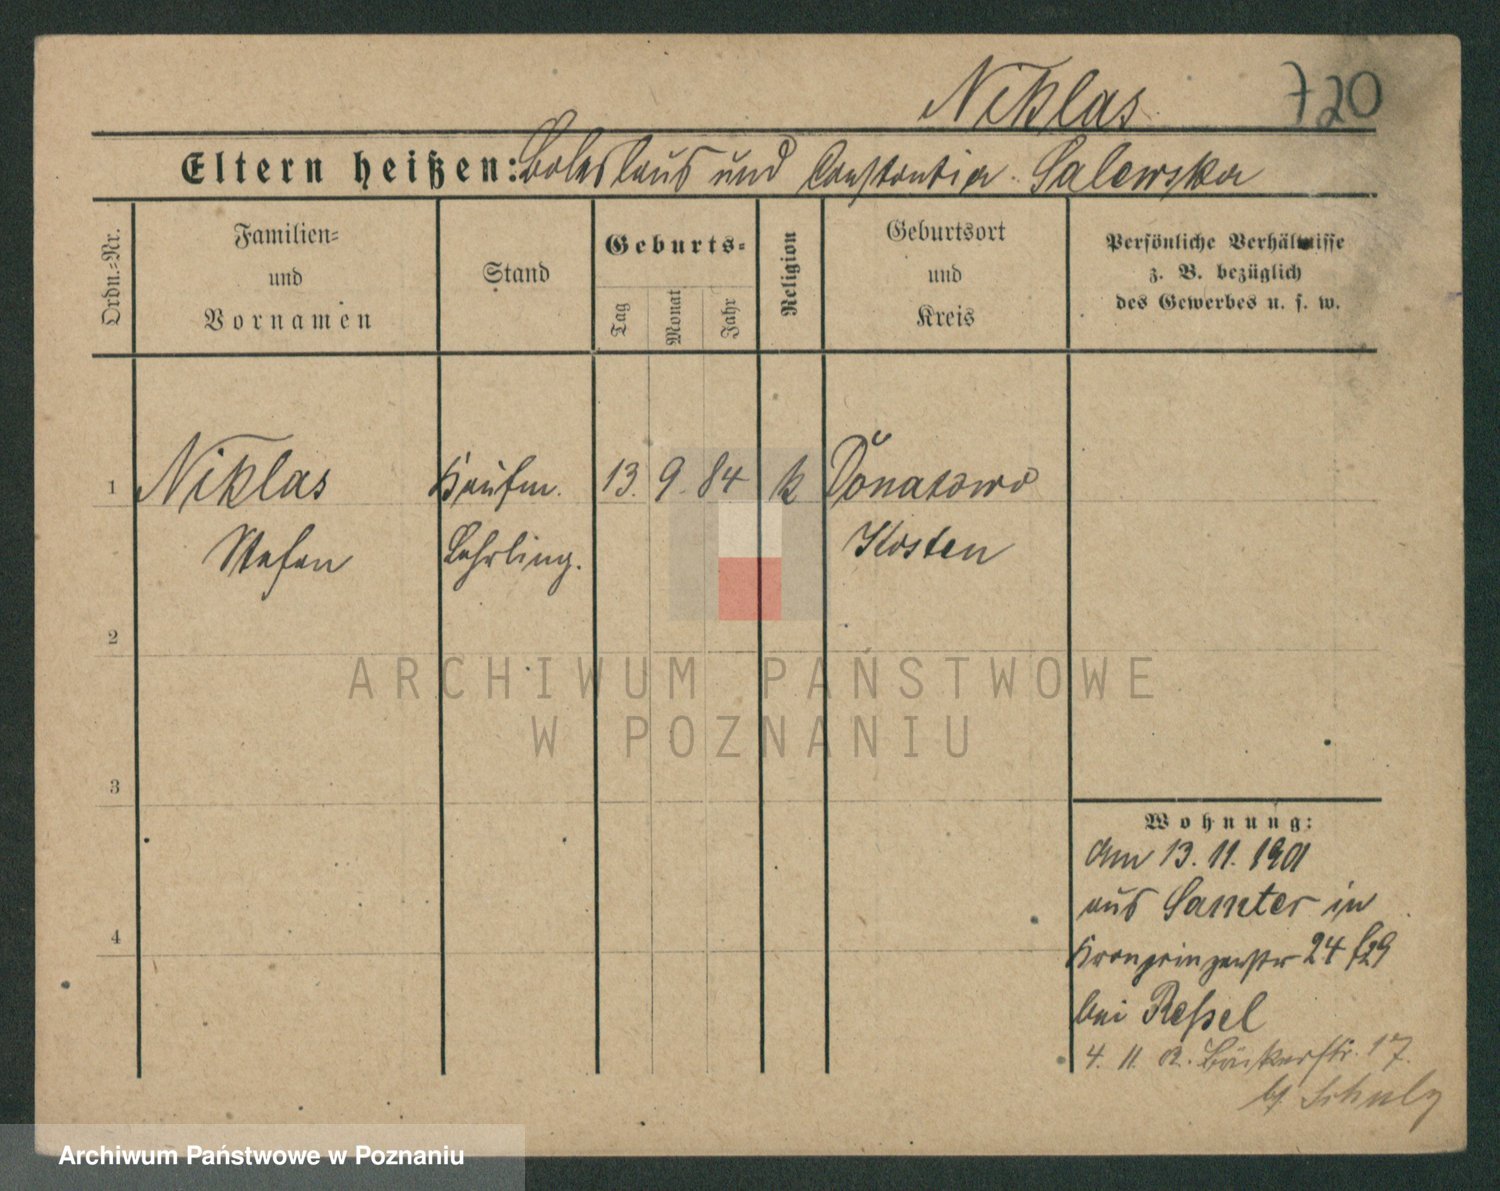 Niklas 720
Eltern heißen: Boleslaus und Constantia Salewska
Ordn.=Nr.
Familien=
und
Vornamen
Stand
Geburts=
Tag
Monat
Jahr
Religion
Geburtsort
und
Kreis
Persönliche Verhältnisse
z. B. bezüglich
des Gewerbes u. s. w.
1 Niklas Kaufm. 13. 9. 84 k Donatowo
Stefan Lehrling. Kosten
2
3
4
Wohnung:
Am 13. 11. 1901
aus Samter in
Kronprinzenstr 24
bei Reßel
4. 11. 02. Bäckerstr. 17.
b/ Schulz
ARCHIWUM PAŃSTWOWE
W POZNANIU
Archiwum Państwowe w Poznaniu